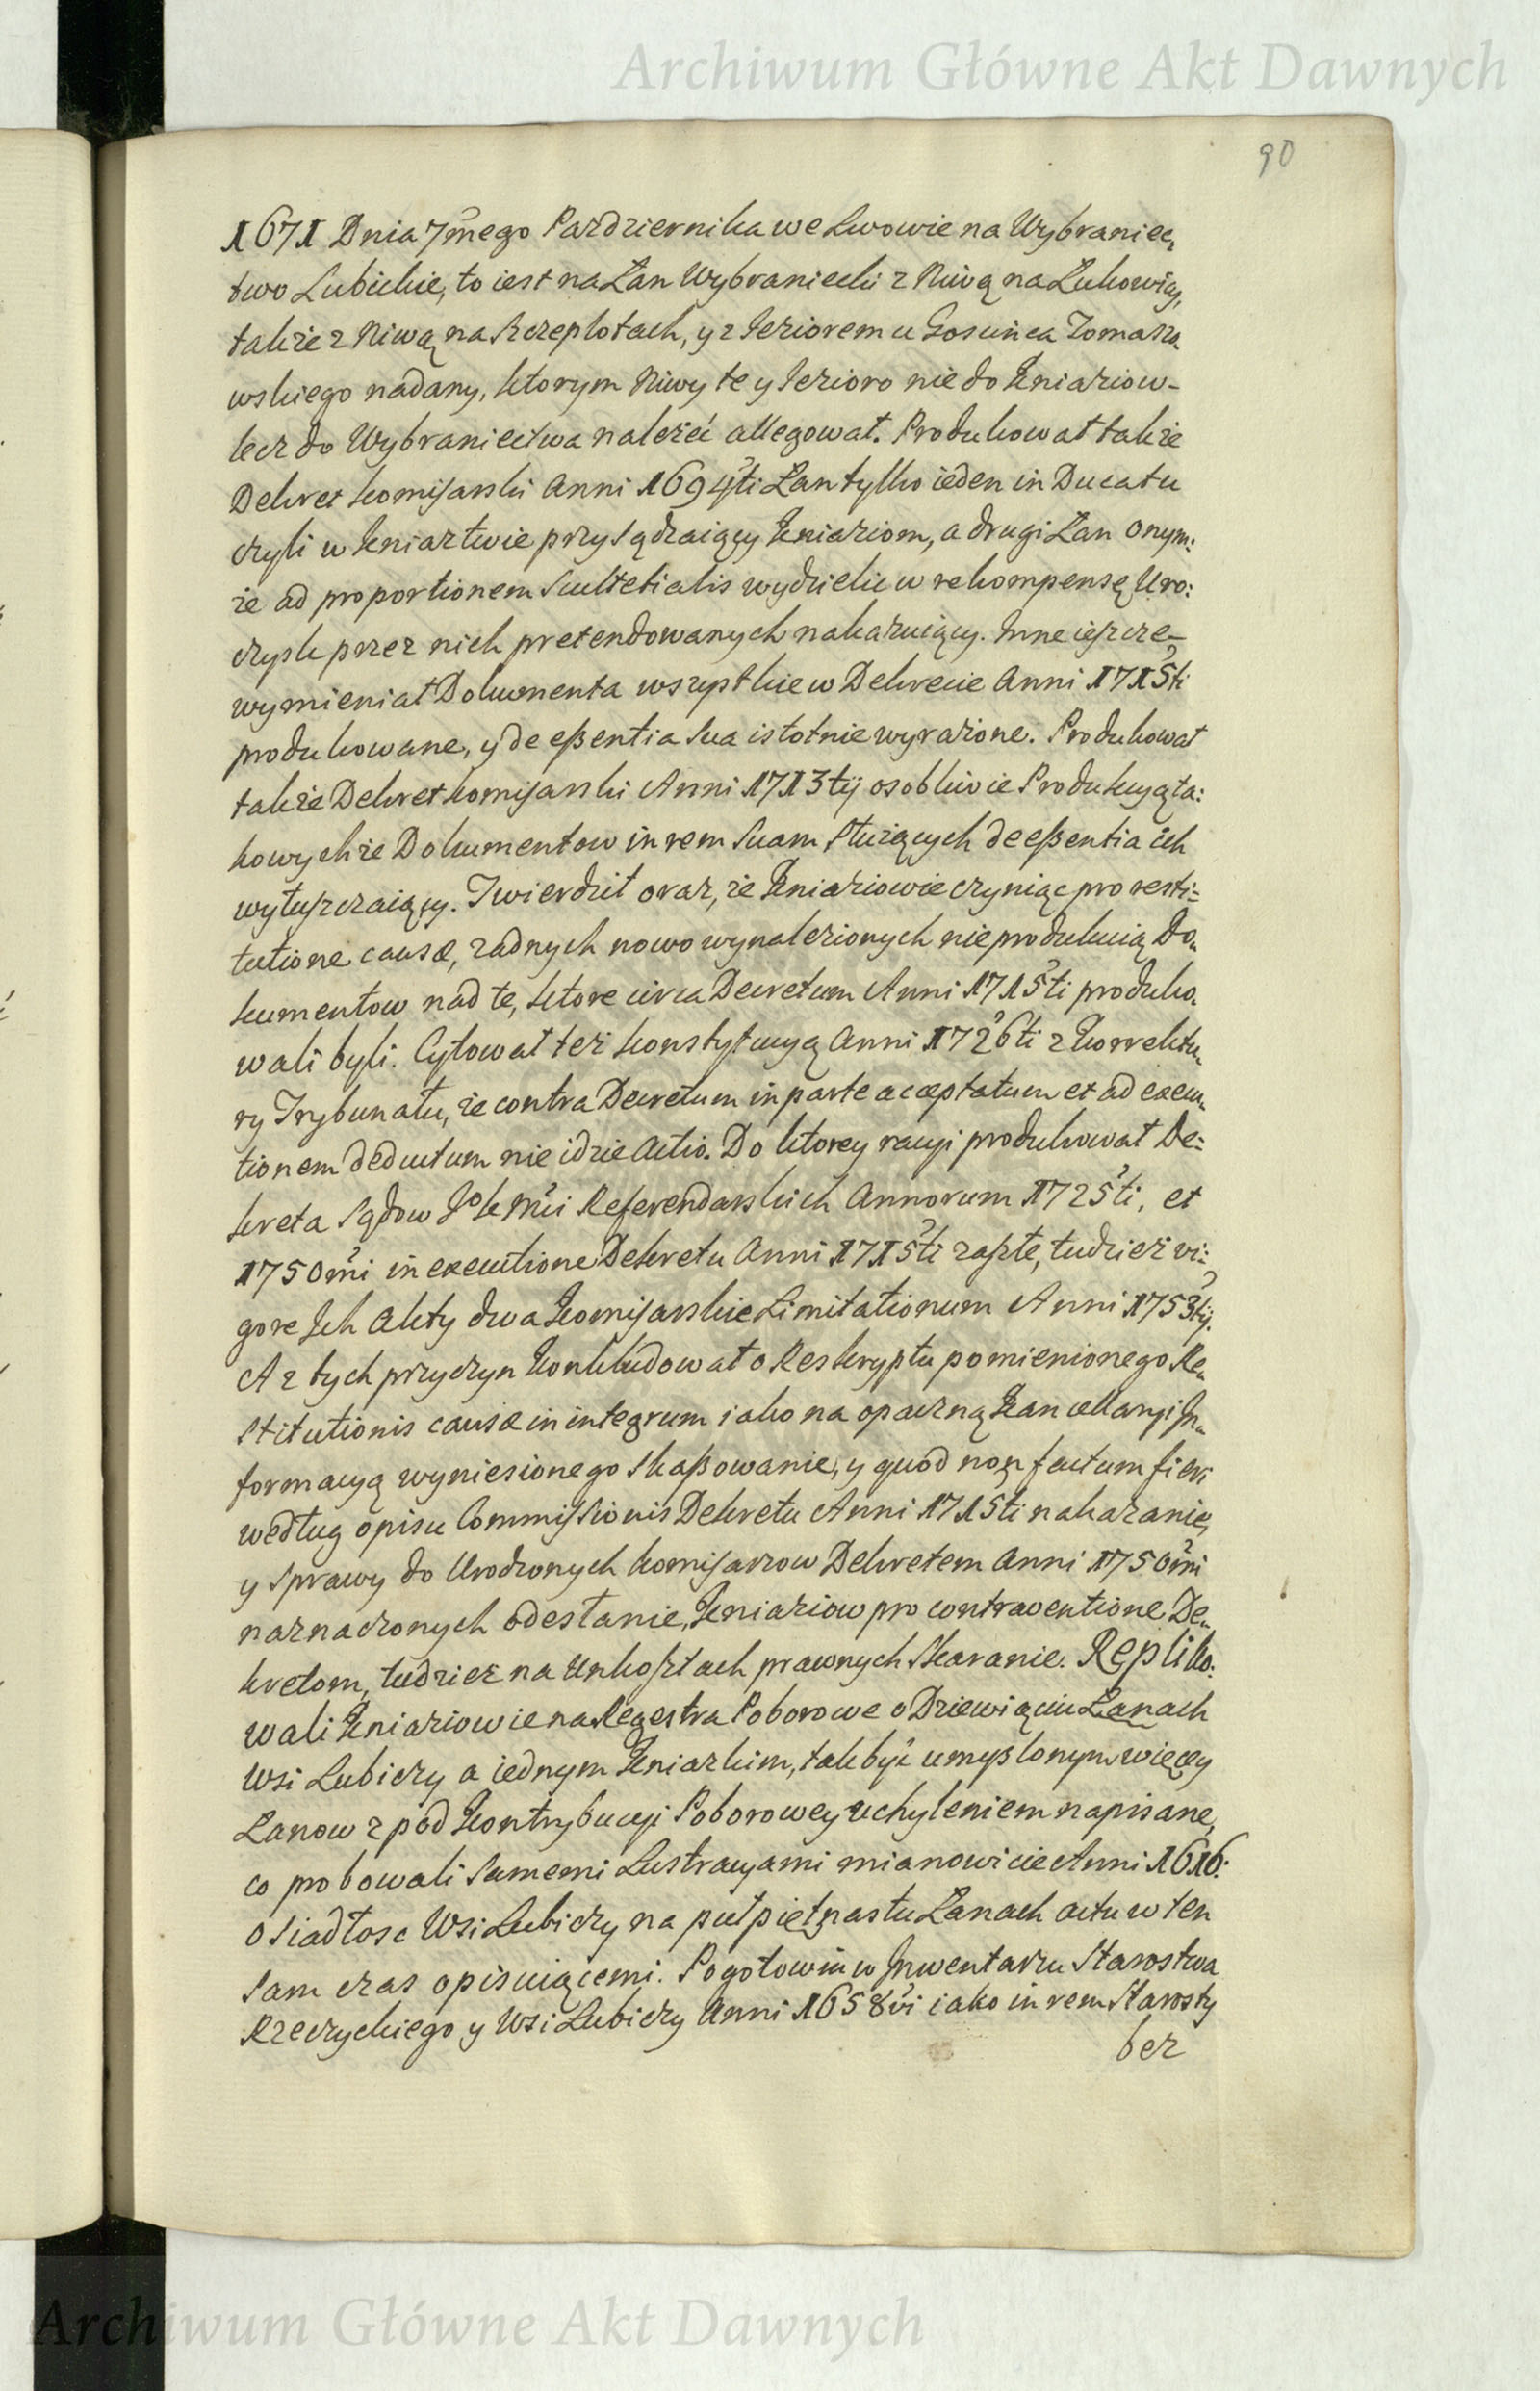 Archiwum Główne Akt Dawnych
90
1671 Dnia 7mego Pazdziernika we Lwowie na Wybraniec„
two Lubickie, to iest na Łan Wybraniecki z Niwą na Łukowicy,
takze z Niwą na Rzeplotach, y z Ieziorem u Goscinca Tomaszo„
wskiego nadany, ktorym Niwy te y Iezioro nie do Kniaziow-
lecz do Wybraniectwa nalezéć allegował. Produkował także
Dekret komisarski Anni 1694ti Łan tylko ieden in Ducatu
czyli w Kniaztwie przysądzaiący Kniaziom, a drugi Łan onym:
ze ad proportionem Scultetialis wydzielic w rekompensę Uro:
czysk przez nich pretendowanych nakazuiący. Inne ieszcze-
wymieniał Dokumenta wszystkie w Dekrecie Anni 1715ti
produkowane, y de eßentia sua istotnie wyrażone. Produkował
także Dekret komisarski Anni 1713tij osobliwie Produkcyą ta:
kowychże Dokumentow in rem Suam służących de eßentia ich
wytuszczaiący. Twierdził oraz, że Kniaziowie czyniąc pro resti=
tutione causæ, zadnych nowo wynalezionych nie produkuią Do„
kumentow nad te, ktore circa Decretum Anni 1715ti produko„
wali byli. Cytował też konstytucyą Anni 1726ti z Korrektu„
ry Trybunału, że contra Decretum in parte acceptatum et ad execu„
tionem deductum nie idzie Actio. Do ktorey racyi produkował De=
kreta Sądow JoKMci Referendarskich Annorum 1725ti, et
1750mi in executione Dekretu Anni 1715ti zaszłe, tudzież vi=
gore Ich Akty dwa Komisarskie Limitationum Anni 1753tij.
A z tych przyczyn Konkludował o Reskryptu pomienionego Re„
stitutionis causæ in integrum iako na opaczną Kancellaryi In„
formacyą wyniesionego skaßowanie, y quod non factum fieri
według opisu Commissionis Dekretu Anni 1715ti nakazanie,
y sprawy do Urodzonych komisarzow Dekretem Anni 1750mi
naznaczonych odesłanie, Kniaziow pro contraventione De„
kretom, tudziez na Unkosztach prawnych Skaranie. Repliko:
wali Kniaziowie na Regestra Poborowe o Dziewiąciu Łanach
Wsi Lubiczy a iednym Kniazkim, tak być umyslonym więcey
Łanow z pod Kontrybucyi Poborowey uchyleniem napisane,
co probowali samemi Lustracyami mianowicie Anni 1616.
osiadłosc Wsi Lubiczy na pułpiętnastu Łanach actu w ten
sam czas opisuiącemi. Pogotowiu w Inwentarzu Starostwa
Rzeczyckiego y Wsi Lubiczy Anni 1658vi iako in rem Starosty
bez
Archiwum Główne Akt Dawnych